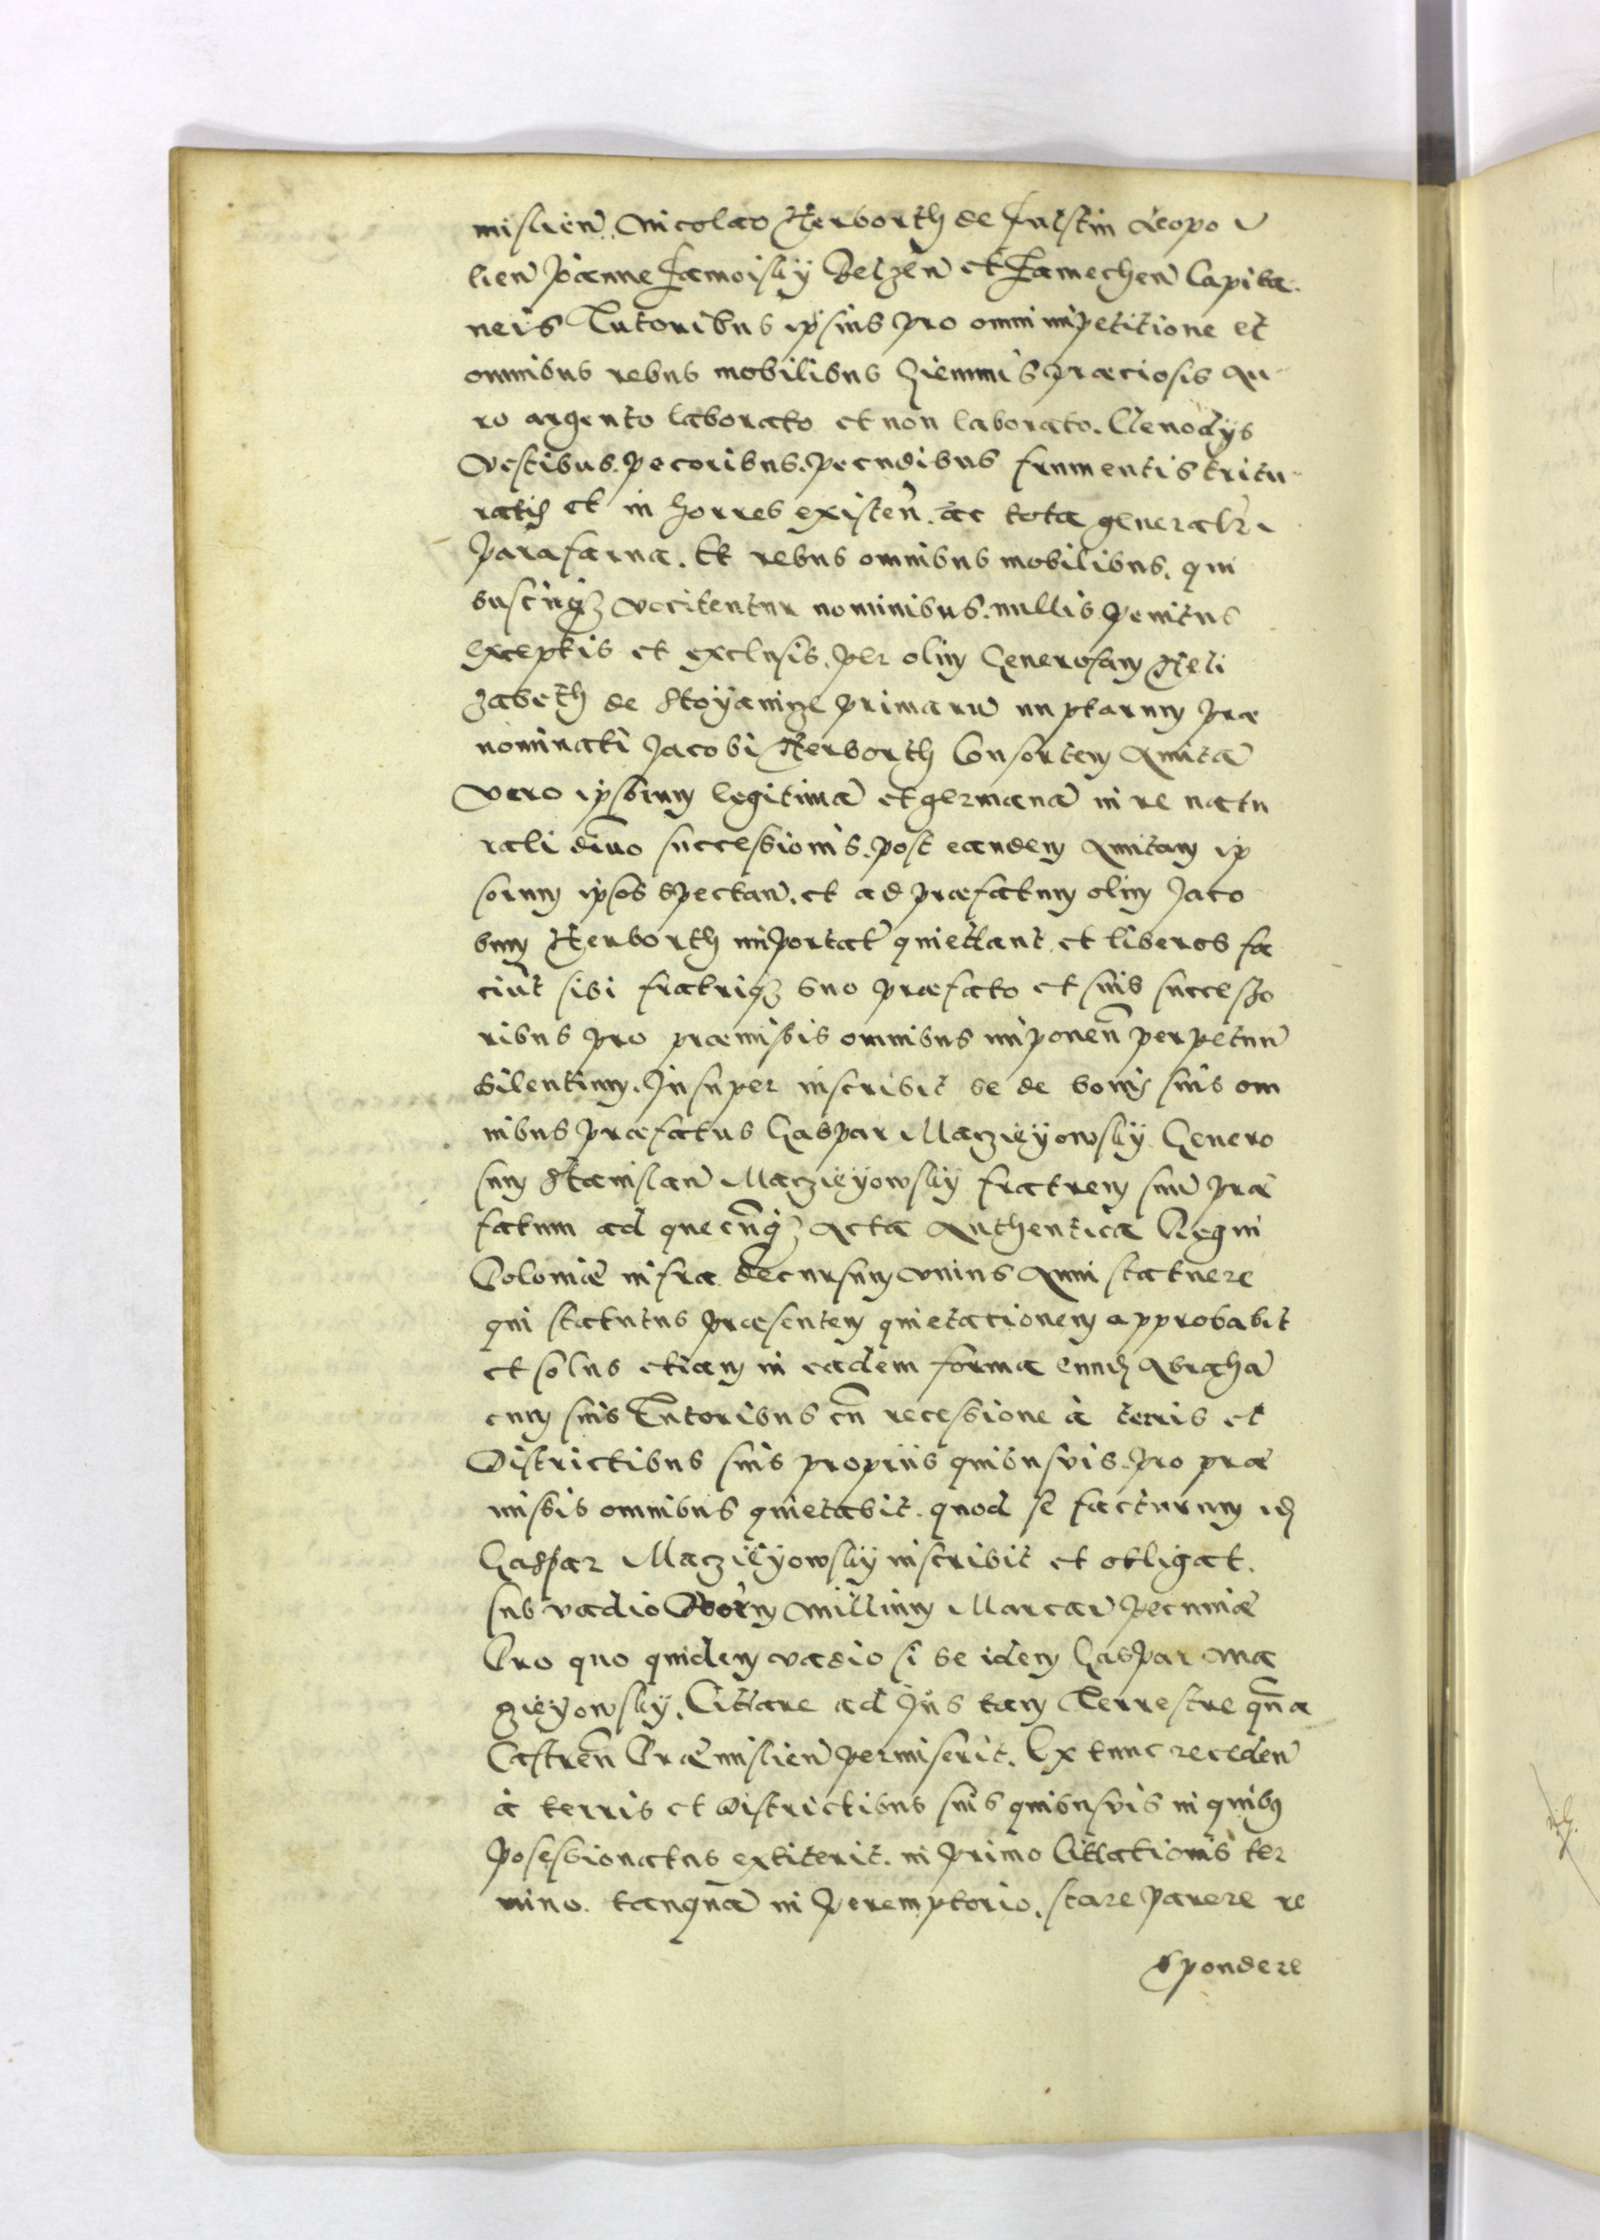 mislien̄. Nicolao Herborth de Fulstin Leopo
lien̄ Joanne Zamoisky Belzen̄ et Zamechen̄ Capita
neis Tutoribus ipsius pro omni impetitione et
omnibus rebus mobilibus Ziemmis præciosis Au
ro argento laborato et non laborato. Clenodys
Vestibus. pecoribus. pecudibus frumentis tritu
ratis et in horreo existen̄. ac tota generalr̄
parafarna. Et rebus omnibus mobilibus. qui
buscūq3 vocitentur nominibus. nullis penitus
exceptis et exclusis. per olim Generosam Heli
zabeth de Stoyanize primarū nuptarum præ
nominati Jacobi Herborth Consortem Amitā
Vero ipsorum legitimā et germanā in re natu
rali divo successionis. post eandem Amitam ip
sorum ipsos spectan̄. et ad præfatum olim Jaco
bum Herborth importat̄ quiettant et liberos fa
ciūt sibi fratriq3 suo præfato et suis successo
ribus pro præmissis omnibus imponen̄ perpetuū
silentium. Insuper inscribit se de bonis suis om
nibus præfatus Caspar Maczieÿowskÿ Genero
sum Stanislaū Maczieÿowskÿ fratrem suū præ
fatum ad quecūq3 Acta Authentica Regni
Poloniæ infra decursum vnius Anni statuere
qui statutus præsentem quietationem approbabit
et solus etiam in eadem forma eund Abrahā
cum suis Tutoribus cū recessione à terris et
Districtibus suis proprÿs quibusvis. pro præ
missis omnibus quietabit. quod se facturum id
Caspar Maczieÿowskÿ inscribit et obligat.
sub vadio Millium Marcar̄ pecuniæ
Pro quo quidem vadio si se idem Caspar Ma
czieÿowskÿ. Cittare ad Jus tam Terrestre quā
Castren̄ Præmislien̄ permiserit. Ex tunc receden̄
à terris et Districtibus suis quibusvis in quib9
possessionatus extiterit. in primo Cittationis ter
mino. tanquā in peremptorio. stare parere re
spondere